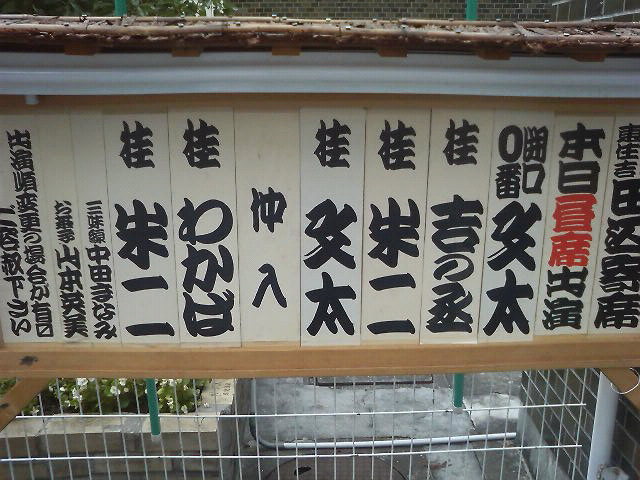 東住吉 田辺寄席
本日昼席出演
開口0番 文太
桂 吉の丞
桂 朱二
桂 文太
仲入
桂 わかば
桂 朱二
三味線 中田まなみ
お囃子 山本英美
出演順変更の場合が有ります
ご容赦下さい